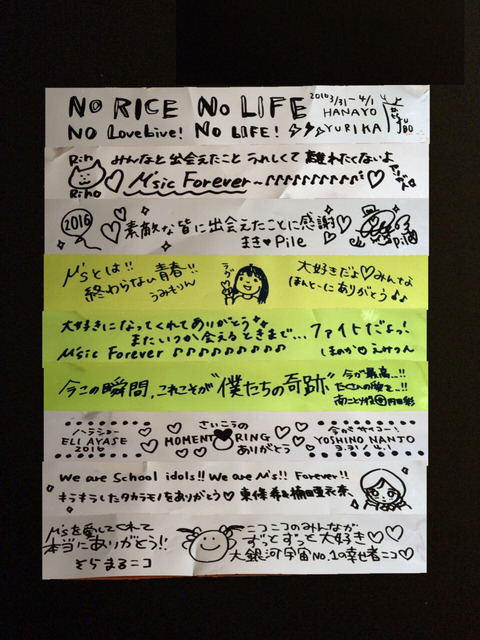 NO RICE NO LIFE
2016 3/31-4/1
HANAYO
NO LoveLive! NO LIFE!
YURIKA
Rin
みんなと出会えたこと うれしくて 離れたくないよ
Riho
μ'sic Forever~♪♪♪♪♪♪♪♪♪♪
2016
素敵な皆に出会えたことに感謝♡
まき♥Pile
μ'sとは!!
終わらない青春!!
うみもりん
ラブ
大好きだよ♡みんな
ほんとーにありがとう♪♪
大好きになってくれてありがとう
またいつか会えるときまで… ファイトだよっ!
μ'sic Forever ♪♪♪♪♪♪♪♪♪
ほのか♥えみつん
今この瞬間、これこそが"僕たちの奇跡"
今が最高…!!
たくさんの愛を…!!
南ことり 内田彩
ハラショー
ELI AYASE
2016
さいこうの
MOMENT RING
ありがとう
今がサイコー!
YOSHINO NANJO
3.31/4.1
We are School idols!! We are μ's!! Forever!!
キラキラしたタカラモノをありがとう♡ 東條希&楠田亜衣奈
μ'sを愛してくれて
本当にありがとう!!
そらまるニコ
ニコニコのみんなが
ずっとずっと大好き♡♡
大銀河宇宙No.1の幸せ者ニコ♡